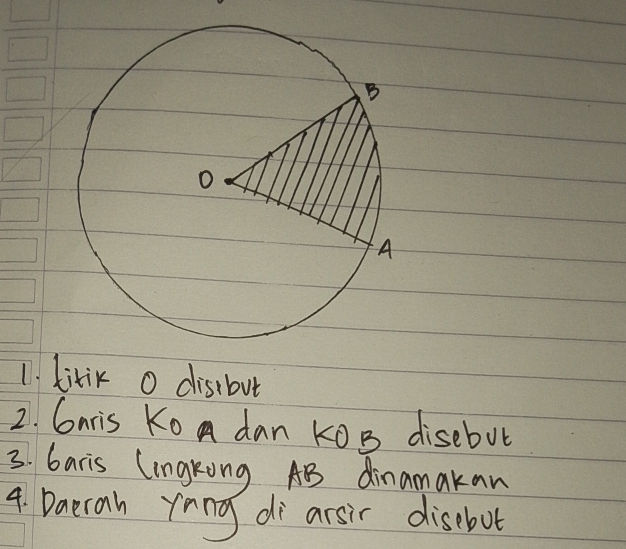 B
O
A
1. titik O disebut
2. Garis KO A dan KO B disebut
3. Garis lengkung AB dinamakan
4. Daerah yang di arsir disebut